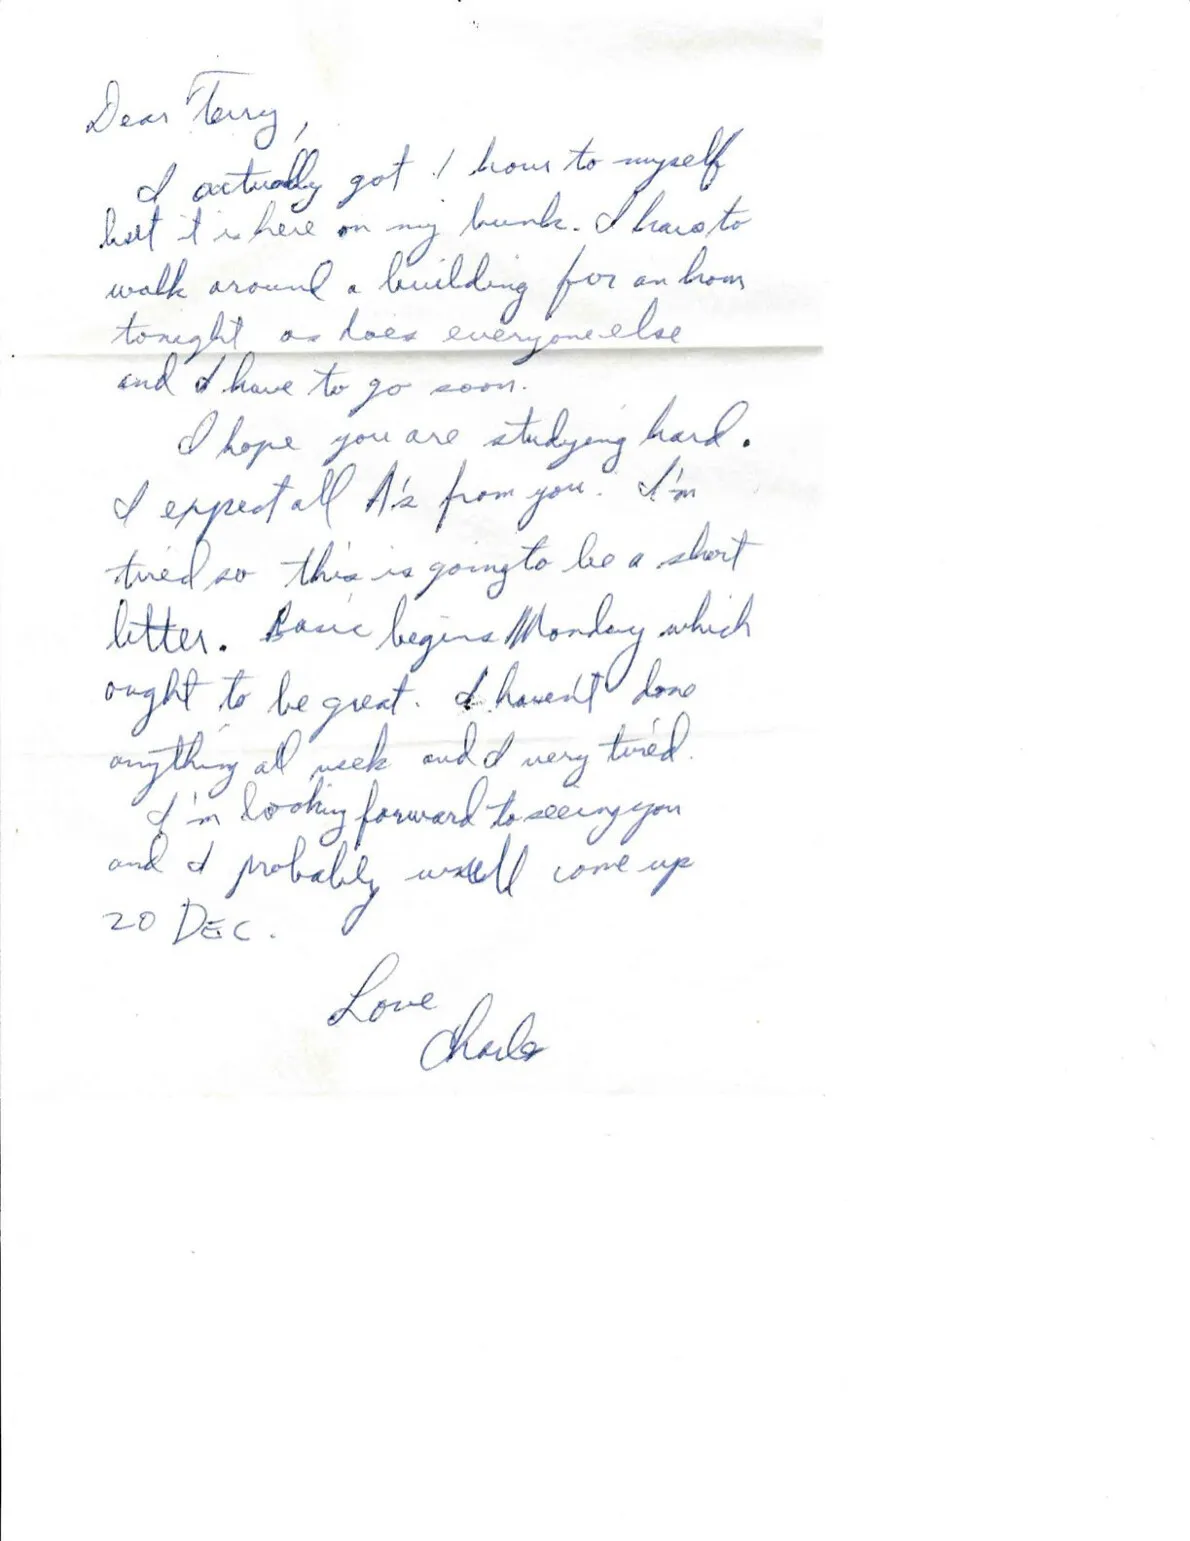 Dear Terry,
I actually got 1 hour to myself
but it is here on my bunk. I have to
walk around a building for an hour
tonight as does everyone else
and I have to go soon.
I hope you are studying hard.
I expect all A's from you. I'm
tired so this is going to be a short
letter. Basic begins Monday which
ought to be great. I haven't done
anything all week and I very tired.
I'm looking forward to seeing you
and I probably will come up
20 DEC.
Love
Charles